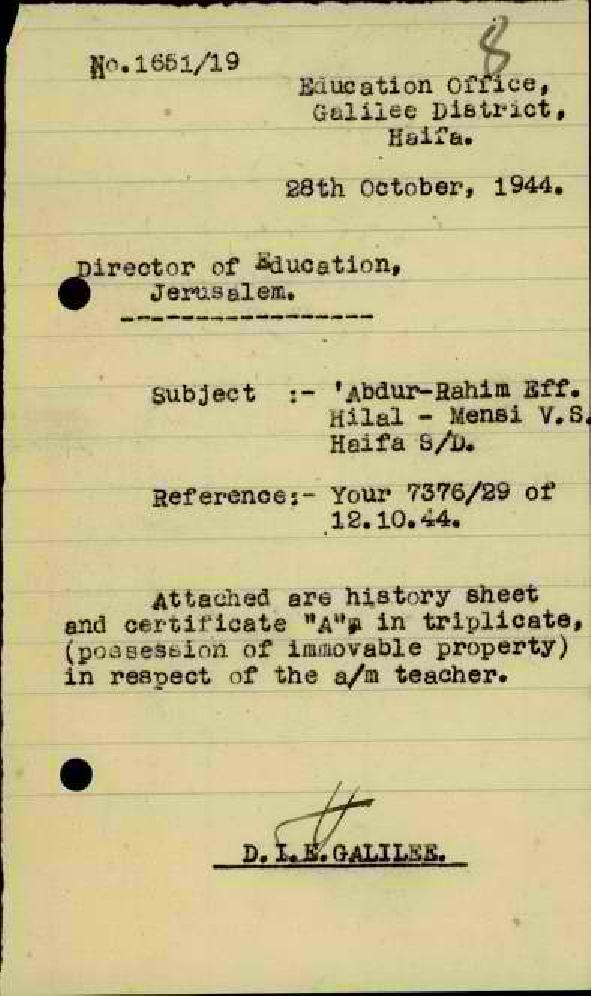 8
No.1651/19
Education Office,
Galilee District,
Haifa.
28th October, 1944.
Director of Education,
Jerusalem.
-----------------
Subject :- 'Abdur-Rahim Eff.
Hilal - Mensi V.S.
Haifa S/D.
Reference:- Your 7376/29 of
12.10.44.
Attached are history sheet
and certificate "A", in triplicate,
(possession of immovable property)
in respect of the a/m teacher.
D.I.E.GALILEE.